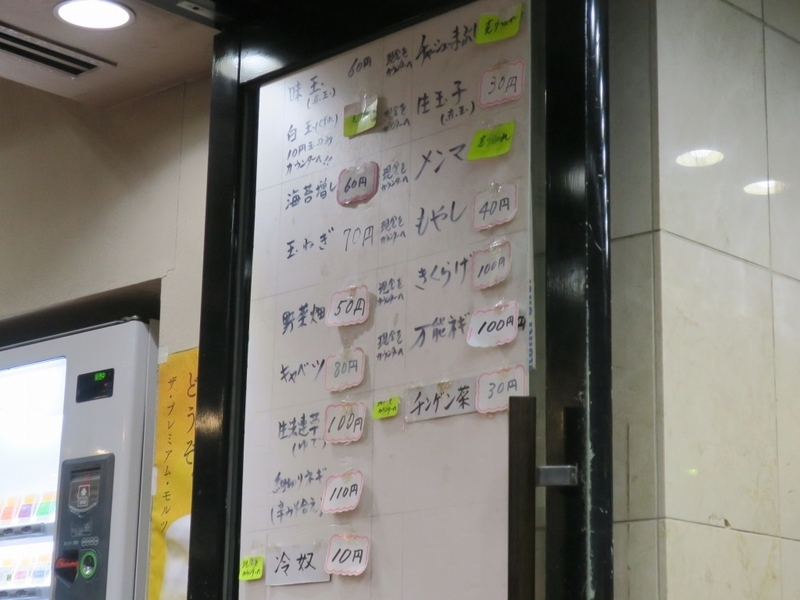 味玉
60円
現金を
カウンターへ
白玉
10円玉のみ
カウンターへ!!
海苔増し
60円
現金を
カウンターへ
玉ねぎ
70円
現金を
カウンターへ
野菜畑
50円
現金を
カウンターへ
キャベツ
80円
現金を
カウンターへ
100円
(ゆで)
ネギ
110円
冷奴
10円
チャーシュー
売り切れ
生玉子
30円
メンマ
売り切れ
もやし
40円
きくらげ
100円
万能ネギ
100円
チンゲン菜
30円
どうぞ
ザ・プレミアム・モルツ